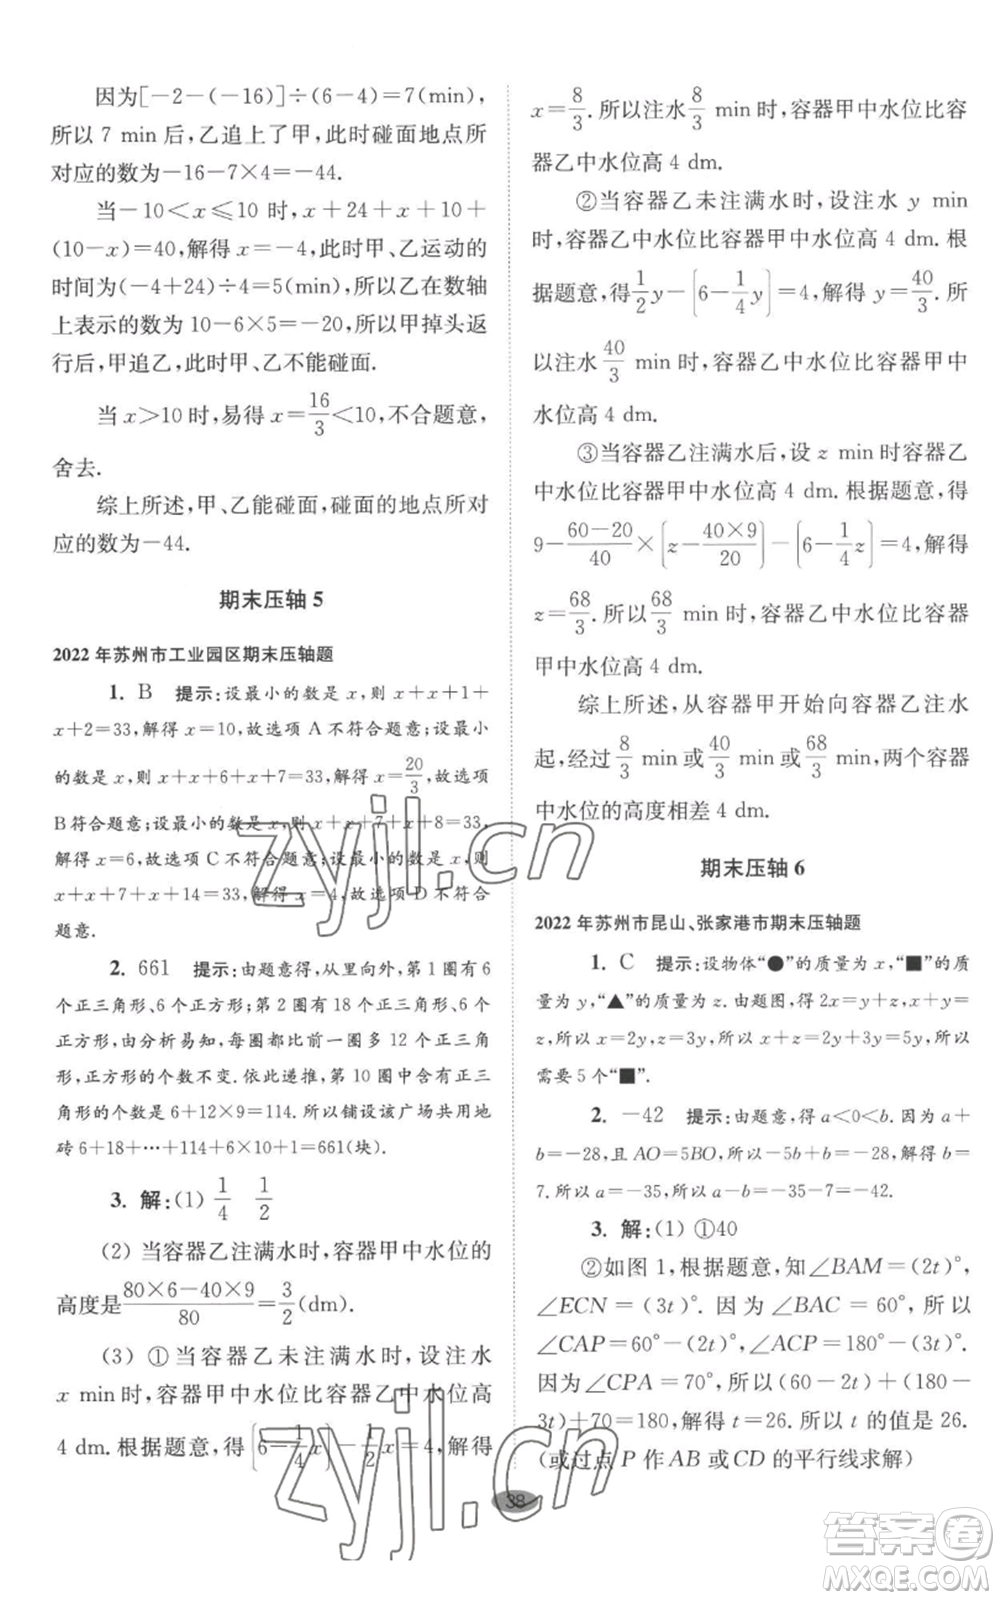 因为[-2-(-16)]÷(6-4)=7(min),
所以 7 min 后,乙追上了甲,此时碰面地点所
对应的数为-16-7×4=-44.
当-10<x≤10 时,x+24+x+10+
(10-x)=40,解得 x=-4,此时甲、乙运动的
时间为(-4+24)÷4=5(min),所以乙在数轴
上表示的数为 10-6×5=-20,所以甲掉头返
行后,甲追乙,此时甲、乙不能碰面.
当 x>10 时,易得 x=16/3<10,不合题意,
舍去.
综上所述,甲、乙能碰面,碰面的地点所对
应的数为-44.
期末压轴 5
2022 年苏州市工业园区期末压轴题
1. B 提示:设最小的数是 x,则 x+x+1+
x+2=33,解得 x=10,故选项 A 不符合题意;设最小
的数是 x,则 x+x+6+x+7=33,解得 x=20/3,故选项
B符合题意;设最小的数是 x,则 x+x+7+x+8=33,
解得 x=6,故选项 C 不符合题意;设最小的数是 x,则
x+x+7+x+14=33,解得 x=4,故选项 D 不符合
题意.
2. 661 提示:由题意得,从里向外,第 1 圈有 6
个正三角形、6 个正方形;第 2 圈有 18 个正三角形、6 个
正方形,由此分析易知,每圈都比前一圈多 12 个正三角
形,正方形的个数不变.依此递推,第 10 圈中含有正三
角形的个数是 6+12×9=114.所以铺设该广场共用地
砖 6+18+…+114+6×10+1=661(块).
3. 解:(1) 1/4 1/2
(2) 当容器乙注满水时,容器甲中水位的
高度是(80×6-40×9)/80=3/2(dm).
(3) ①当容器乙未注满水时,设注水
x min时,容器甲中水位比容器乙中水位高
4 dm.根据题意,得(6-1/4x)-1/2x=4,解得
x=8/3.所以注水8/3 min 时,容器甲中水位比容
器乙中水位高 4 dm.
②当容器乙未注满水时,设注水 y min
时,容器乙中水位比容器甲中水位高 4 dm.根
据题意,得1/2y-(6-1/4y)=4,解得 y=40/3.所
以注水40/3 min 时,容器乙中水位比容器甲中
水位高 4 dm.
③当容器乙注满水后,设 z min时容器乙
中水位比容器甲中水位高 4 dm.根据题意,得
9-(60-20)/40×(z-(40×9)/20)-(6-1/4z)=4,解得
z=68/3.所以68/3 min 时,容器乙中水位比容器
甲中水位高 4 dm.
综上所述,从容器甲开始向容器乙注水
起,经过8/3 min 或40/3 min 或68/3 min,两个容器
中水位的高度相差 4 dm.
期末压轴 6
2022 年苏州市昆山、张家港市期末压轴题
1. C 提示:设物体“●”的质量为 x,“■”的质
量为 y,“▲”的质量为 z.由题图,得 2x=y+z,x+y=
z,所以 x=2y,z=3y,所以 x+z=2y+3y=5y,所以
需要 5 个“■”.
2. -42 提示:由题意,得 a<0<b.因为 a+
b=-28,且 AO=5BO,所以-5b+b=-28,所以 b=
7.所以 a=-35,所以 a-b=-35-7=-42.
3. 解:(1) ①40
②如图 1,根据题意,知∠BAM=(2t)°,
∠ECN=(3t)°.因为∠BAC=60°,所以
∠CAP=60°-(2t)°,∠ACP=180°-(3t)°.
因为∠CPA=70°,所以(60-2t)+(180-
3t)+70=180,解得 t=26.所以 t 的值是 26.
(或过点 P 作 AB 或CD 的平行线求解)
38
zyjl.cn
zyjl.cn
答案圈
MXQE.COM